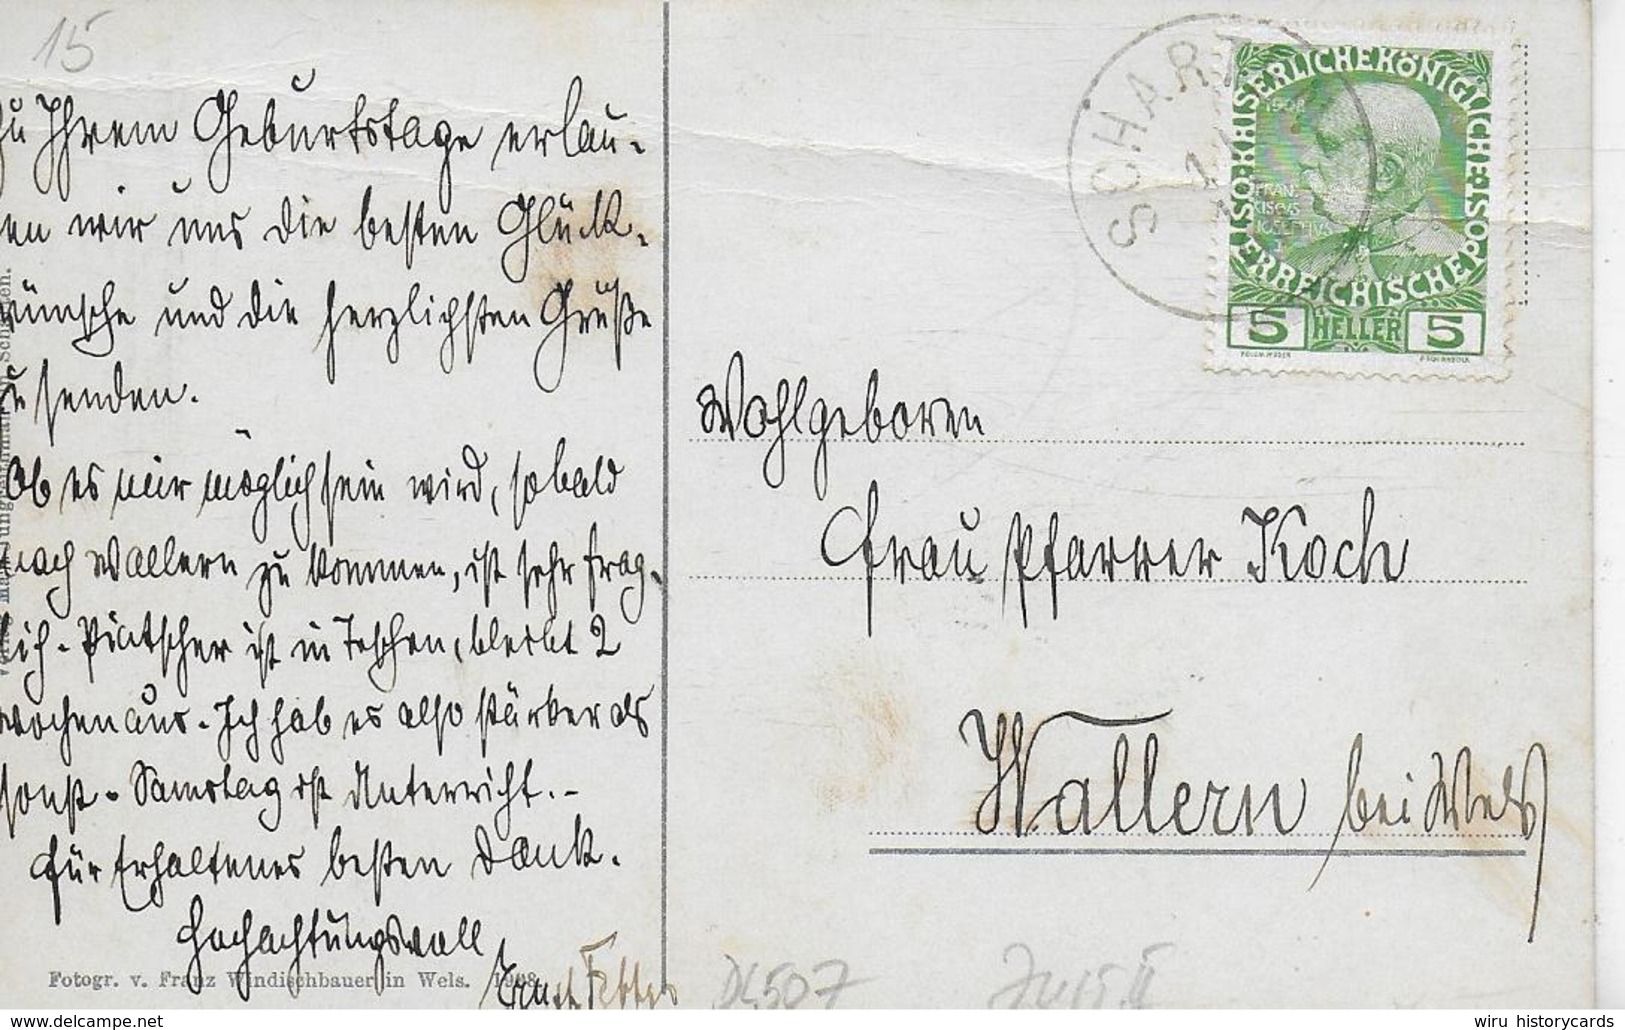 15
zu Ihrem Geburtstage erlau-
en wir uns die besten Glück-
wünsche und die herzlichsten Grüße
zu senden.
Ob es mir möglich sein wird, sobald
nach Wallern zu kommen, ist sehr frag-
lich. ist in Teschen, bleibt 2
Wochen aus. Ich hab es also stärker als
sonst. Samstag ist Unterricht.-
Für Erhaltenes besten Dank.
Hochachtungsvoll
Fotogr. v. Franz Windischbauer in Wels. 1908
SCHART
KAISERLICHE KÖNIGLICHE ÖSTERREICHISCHE POST
1908
FRAN-
CISCVS
IOSEPHVS
5 HELLER 5
Wohlgeboren
Frau Pfarrer Koch
Wallern bei Wels
DL507
wiru historycards